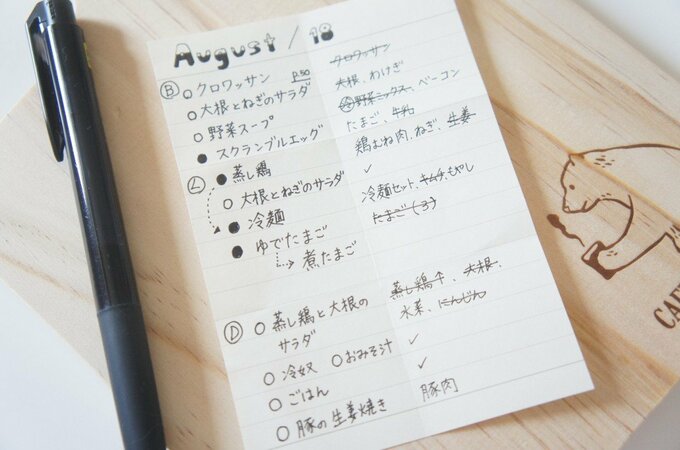 August / 18
Ⓑ ○ クロワッサン P.50 クロワッサン
○ 大根とねぎのサラダ 大根、わけぎ
○ 野菜スープ 野菜ミックス、ベーコン
● スクランブルエッグ たまご、牛乳
Ⓛ ● 蒸し鶏 鶏むね肉、ねぎ、生姜
○ 大根とねぎのサラダ ✓
● 冷麺 冷麺セット、キムチ、もやし
● ゆでたまご たまご(3)
→ 煮たまご
Ⓓ ○ 蒸し鶏と大根の 蒸し鶏↑、大根、
サラダ 水菜、にんじん
○ 冷奴 ○ おみそ汁 ✓
○ ごはん ✓
○ 豚の生姜焼き 豚肉
CAFE